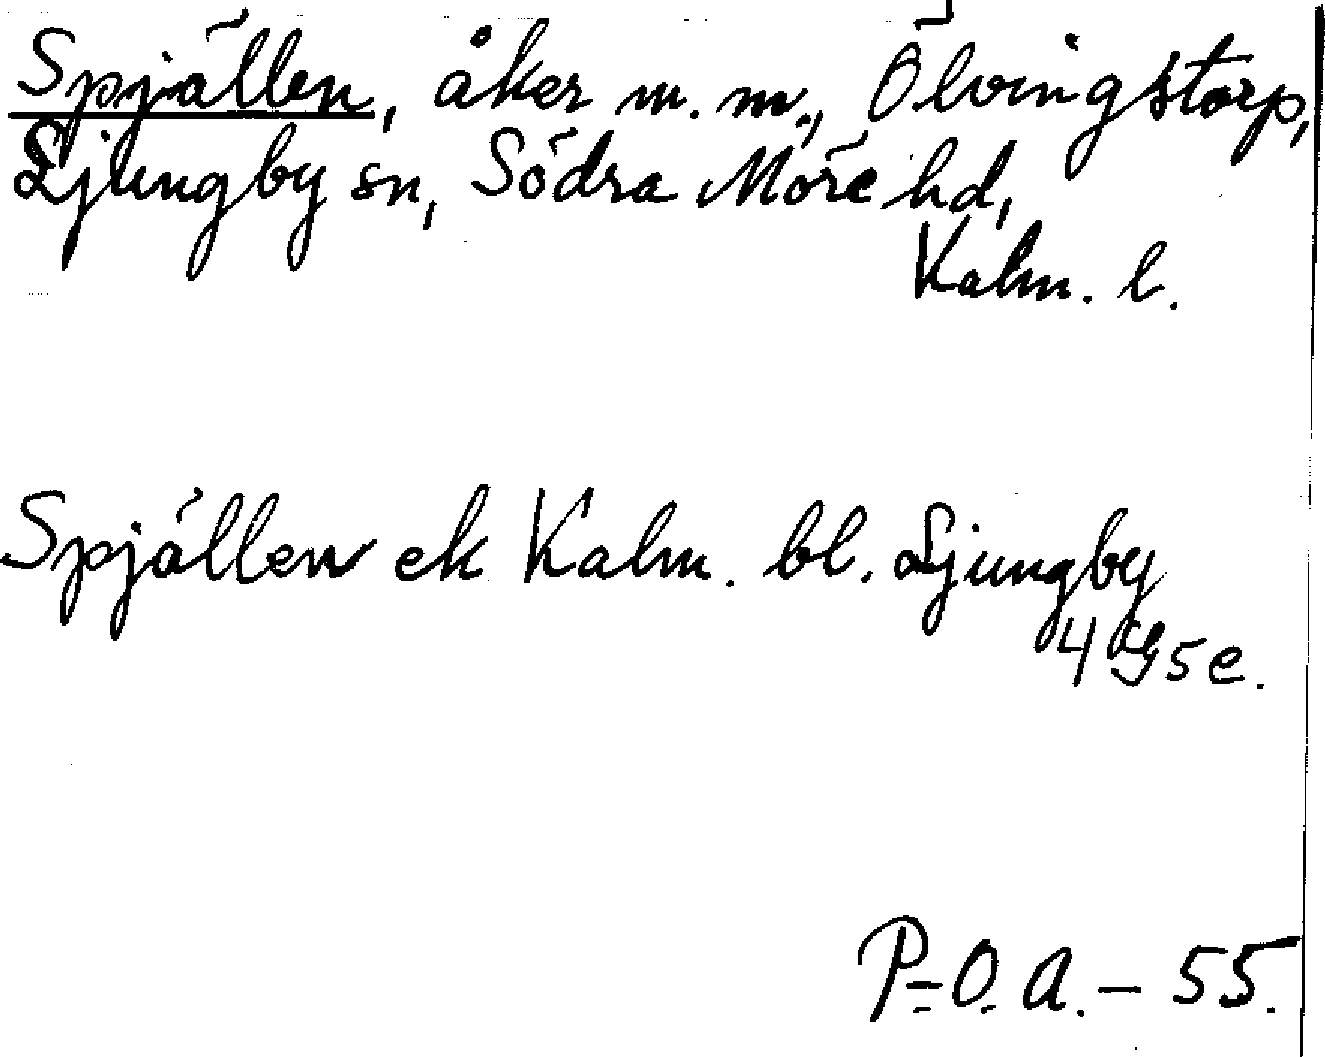 Spjällen, åker m. m., Ölvingstorp,
Ljungby sn, Södra Möre hd,
Kalm. l.
Spjällen ek Kalm. bl. Ljungby
4 G5e.
P-O. A. - 55.